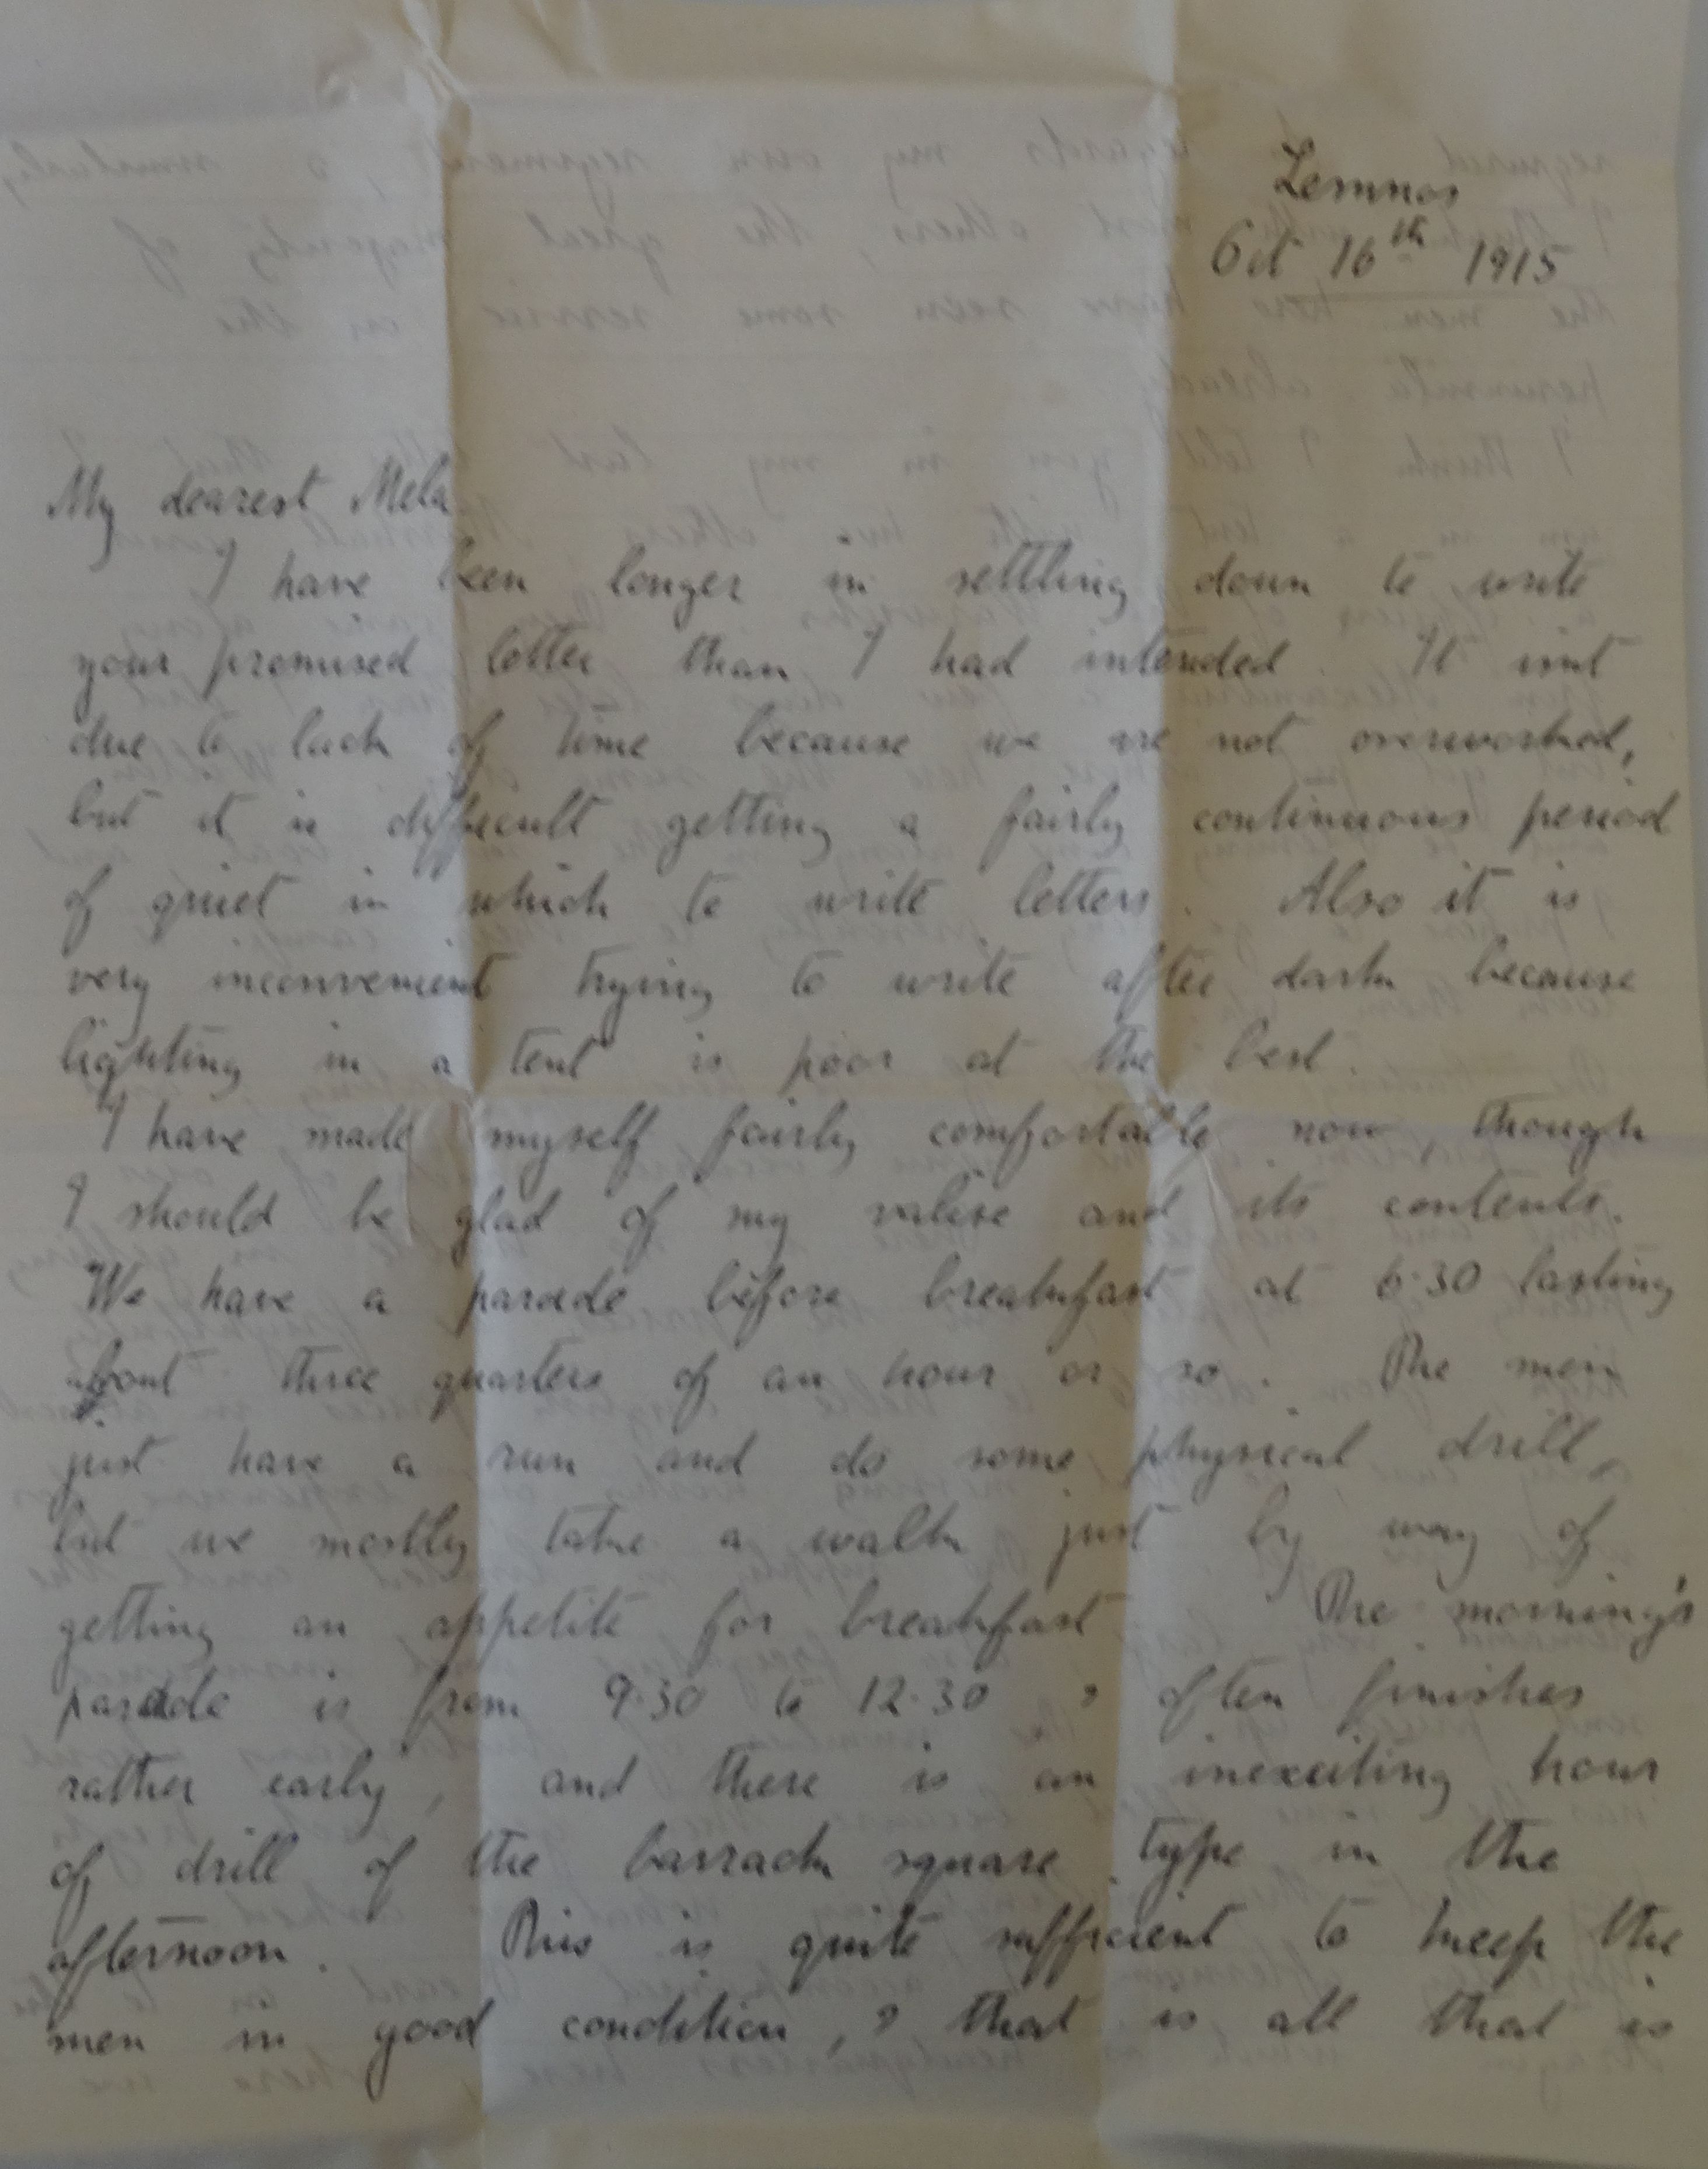 Lemnos
Oct 16th 1915
My dearest Mela
I have been longer in settling down to write
your promised letter than I had intended. It isnt
due to lack of time because we are not overworked,
but it is difficult getting a fairly continuous period
of quiet in which to write letters. Also it is
very inconvenient trying to write after dark because
lighting in a tent is poor at the best.
I have made myself fairly comfortable now, though
I should be glad of my valise and its contents.
We have a parade before breakfast at 6.30 lasting
about three quarters of an hour or so. The men
just have a run and do some physical drill,
but we mostly take a walk just by way of
getting an appetite for breakfast The morning's
parade is from 9.30 to 12.30 & often finishes
rather early, and there is an inexciting hour
of drill of the barrack square type in the
afternoon. This is quite sufficient to keep the
men in good condition, & that is all that is